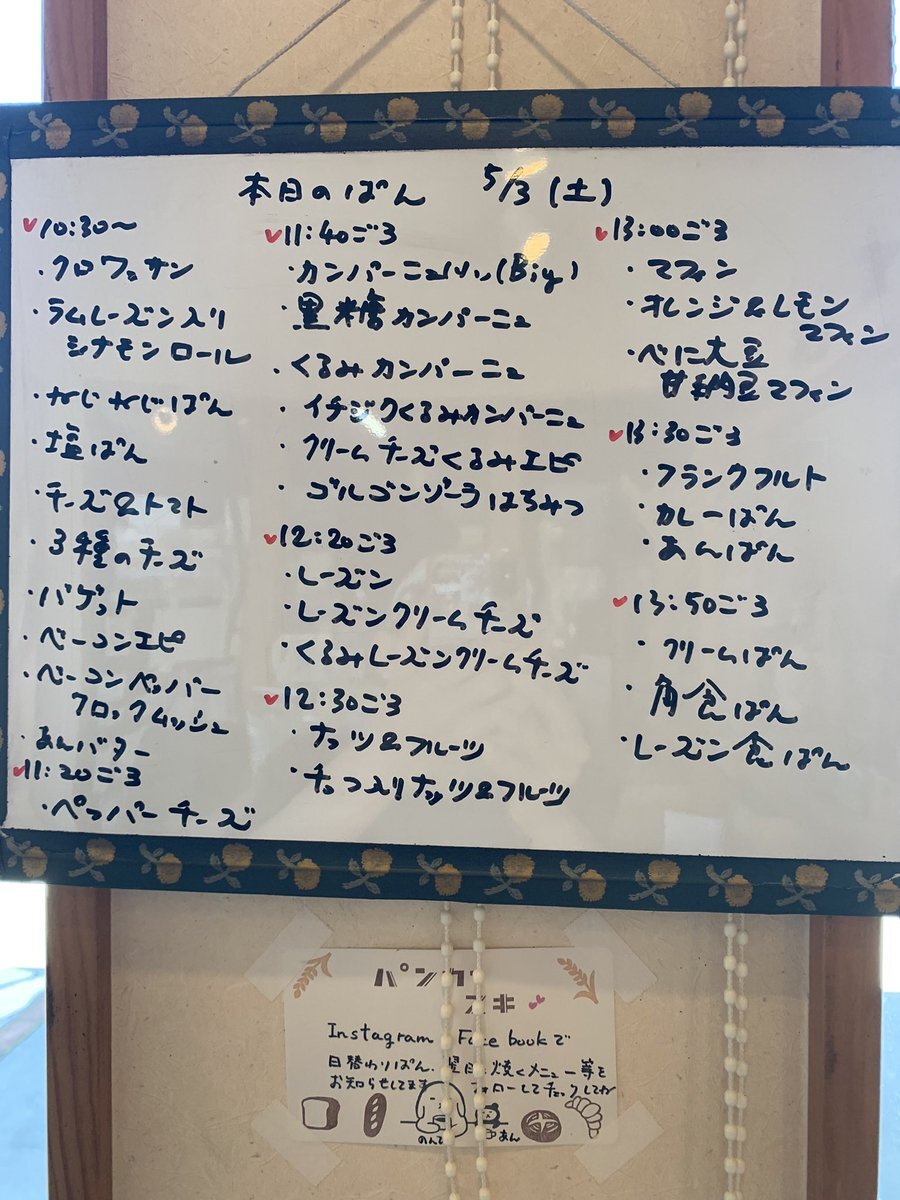 本日のぱん 5/3 (土)
10:30〜
・クロワッサン
・ラムレーズン入り
シナモンロール
・かじかじぱん
・塩ぱん
・チーズ&トマト
・3種のチーズ
・バゲット
・ベーコンエピ
・ベーコンペッパー
クロックムッシュ
・あんバター
11:20ごろ
・ペッパーチーズ
11:40ごろ
・カンパーニュ (Big)
・黒糖カンパーニュ
・くるみカンパーニュ
・イチジクくるみカンパーニュ
・クリームチーズくるみエピ
・ゴルゴンゾーラはちみつ
12:20ごろ
・レーズン
・レーズンクリームチーズ
・くるみレーズンクリームチーズ
12:30ごろ
・ナッツ&フルーツ
・チョコ入りナッツ&フルーツ
13:00ごろ
・マフィン
・オレンジ&レモン
マフィン
・べに大豆
甘納豆マフィン
13:30ごろ
・フランクフルト
・カレーぱん
・あんぱん
13:50ごろ
・クリームぱん
・角食ぱん
・レーズン食ぱん
パン
スキ
Instagram Facebookで
日替わりぱん、翌日焼くメニュー等を
お知らせしてます フォローしてチェックしてね
のんて
あん